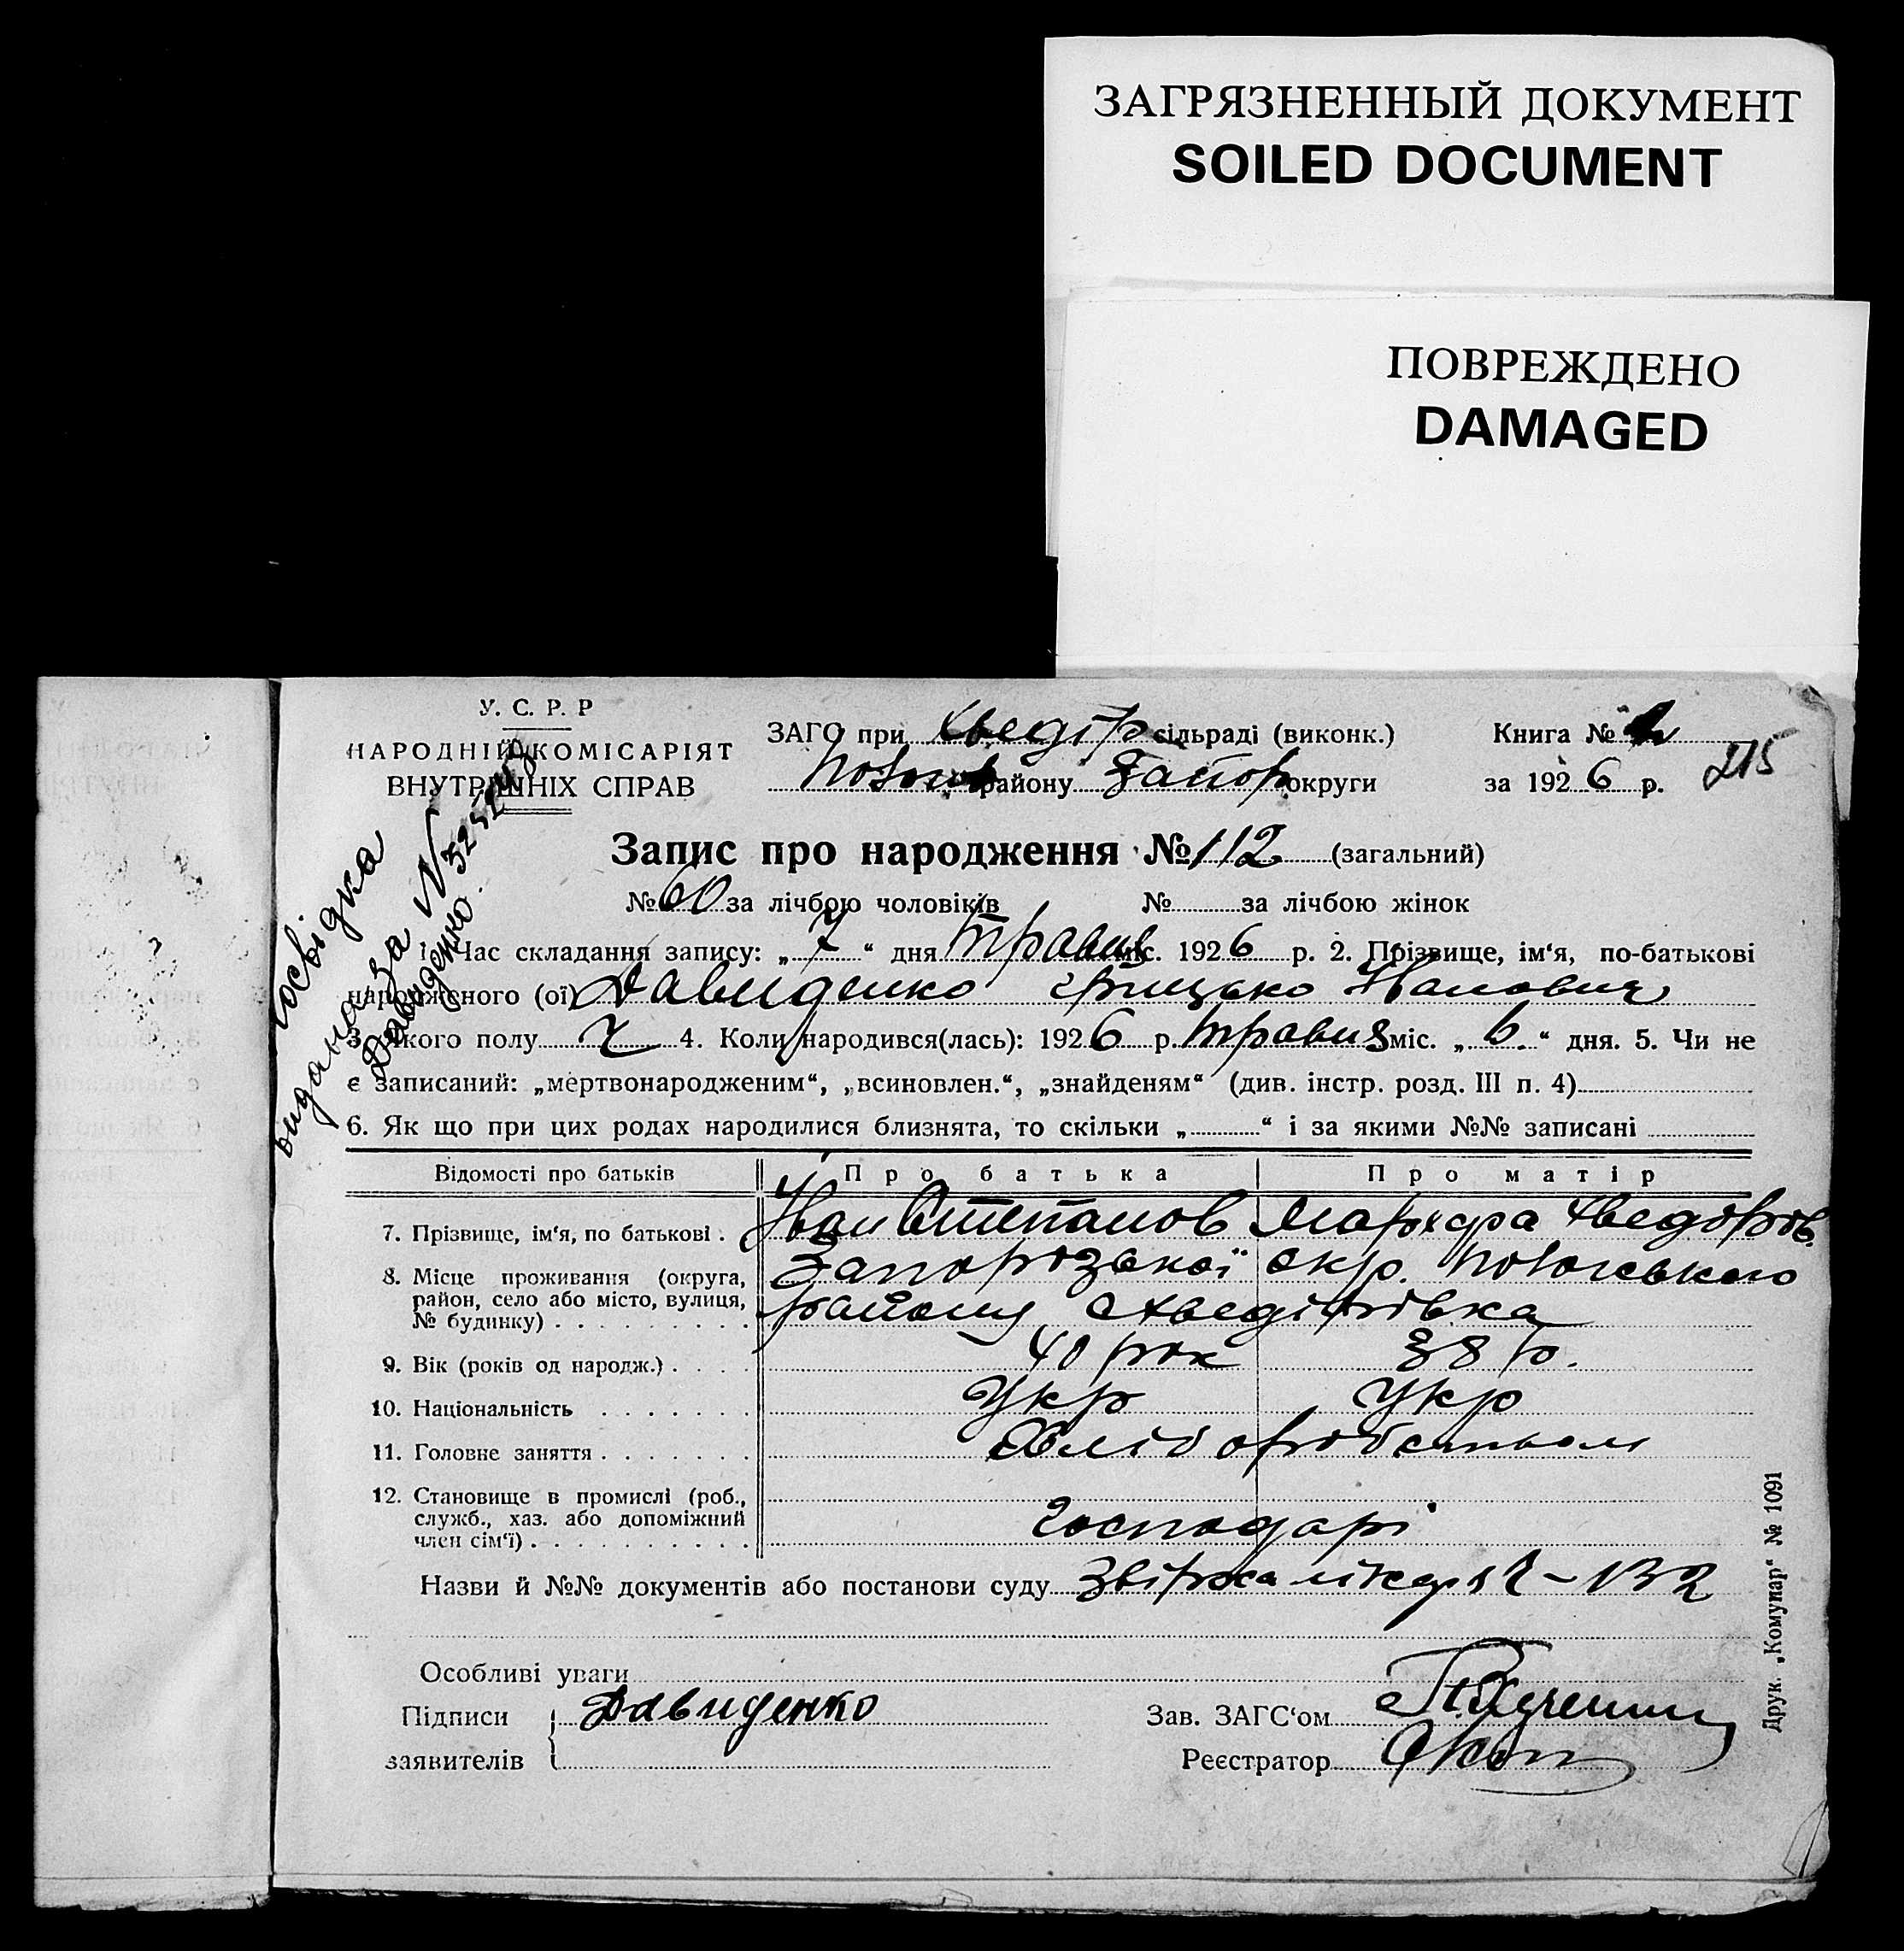 ЗАГРЯЗНЕННЫЙ ДОКУМЕНТ
SOILED DOCUMENT
ПОВРЕЖДЕНО
DAMAGED
У. С. Р. Р
НАРОДНІЙ КОМІСАРІЯТ
ВНУТРІШНІХ СПРАВ
ЗАГС при Хведір сільраді (виконк.)
району Запор округи
Книга №
за 1926 р.
215
Запис про народження № 112 (загальний)
№ 60 за лічбою чоловіків № за лічбою жінок
1. Час складання запису: „ 7 “ дня травня міс. 1926 р. 2. Прізвище, ім‘я, по-батькові
народженого (ої) Давиденко Грицько Иванович
3. Якого полу Ч 4. Коли народився(лась): 1926 р. травня міс. „ 6. “ дня. 5. Чи не
є записаний: „мертвонародженим“, „всиновлен.“, „знайденям“ (див. інстр. розд. III п. 4)
6. Як що при цих родах народилися близнята, то скільки „ “ і за якими №№ записані
Посвідка
видана за №
Давиденко
Відомості про батьків Про батька Про матір
7. Прізвище, ім‘я, по батькові . Иван Степанов Марфа Хведоров.
8. Місце проживання (округа, район, село або місто, вулиця, № будинку) Запорозької окр.
району с Хведірівка
9. Вік (років од народж.) . . . . 40 рок 38 р.
10. Національність . . . . . . . Укр Укр
11. Головне заняття . . . . . . . Хліборобством
12. Становище в промислі (роб., служб., хаз. або допоміжний член сім‘ї) . . . . . . . . . . Господарі
Назви й №№ документів або постанови суду Звірка лікаря 1-132
Особливі уваги
Підписи заявителів Давиденко
Зав. ЗАГС‘ом
Реєстратор
Друк. „Комунар“ № 1091